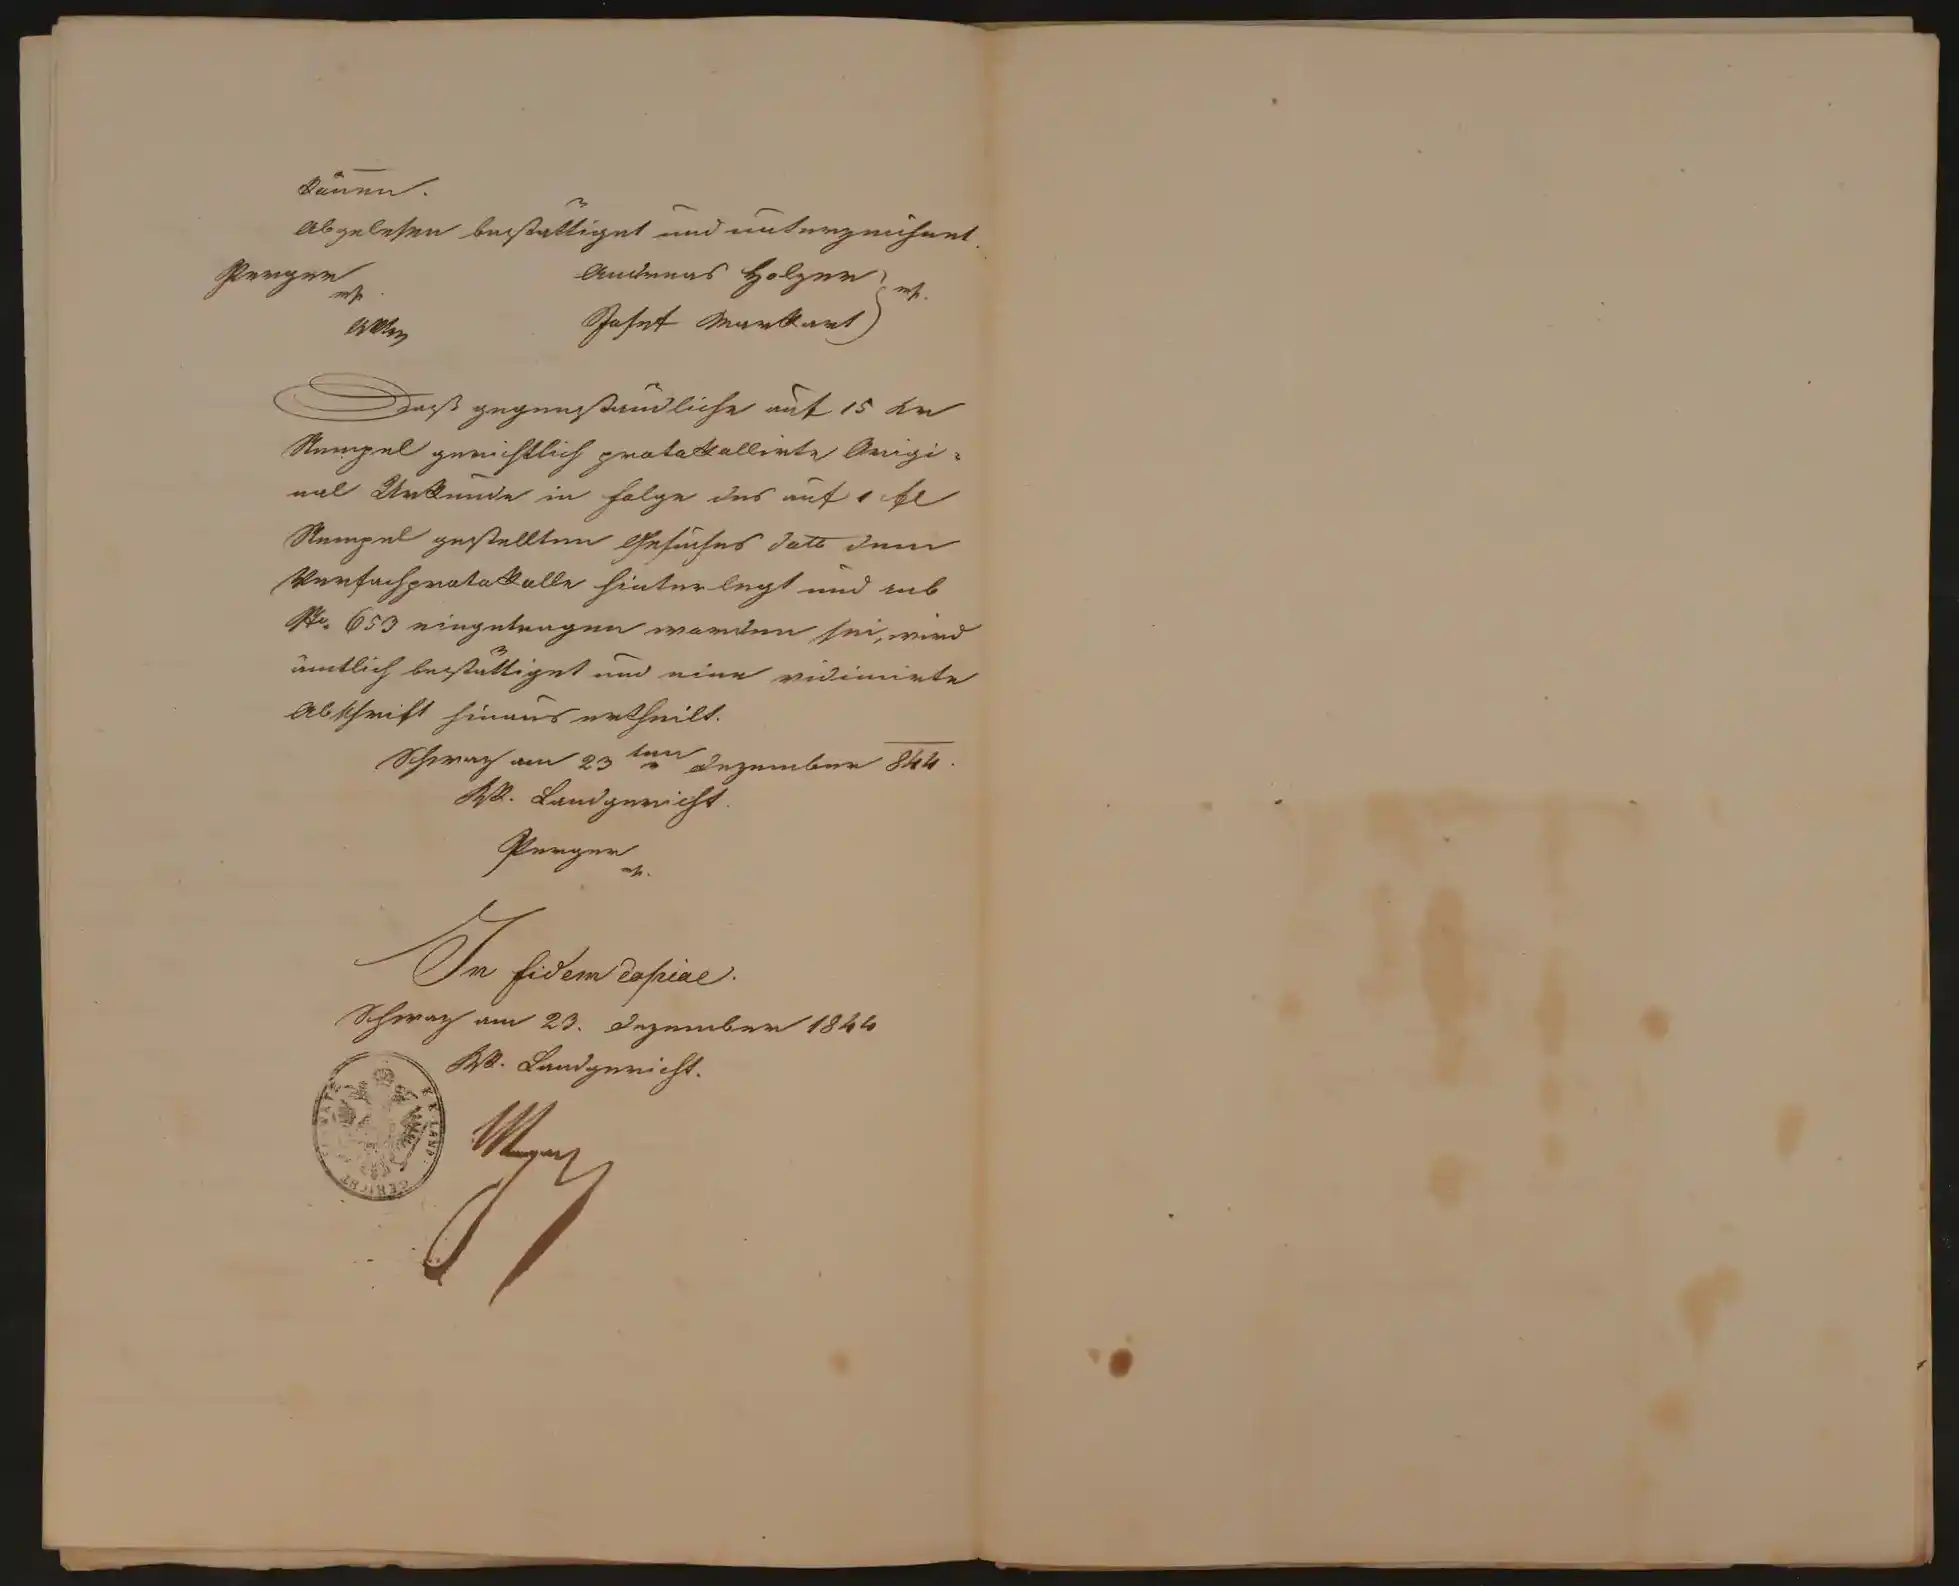 können.
Abgelesen bestättiget und unterzeichnet.
Perger Andreas Holzer
mp. mp.
Josef Markart
Daß gegenständliche auf 15 Kr
Stempel gerichtlich protokollirte Origi=
nal Urkunde in Folge des auf 1 fl
Stempel gestellten Gesuches dato dem
Verfachprotokolle hinterlegt und sub
No. 653 eingetragen worden sei, wird
amtlich bestättiget und eine vidimirte
Abschrift hinaus ertheilt.
Schwaz am 23ten Dezember 844.
KK. Landgericht.
Perger
mp.
In fidem Copiae.
Schwaz am 23. Dezember 1844
KK. Landgericht.
K.K. LAND-
GERICHT
SCHWATZ